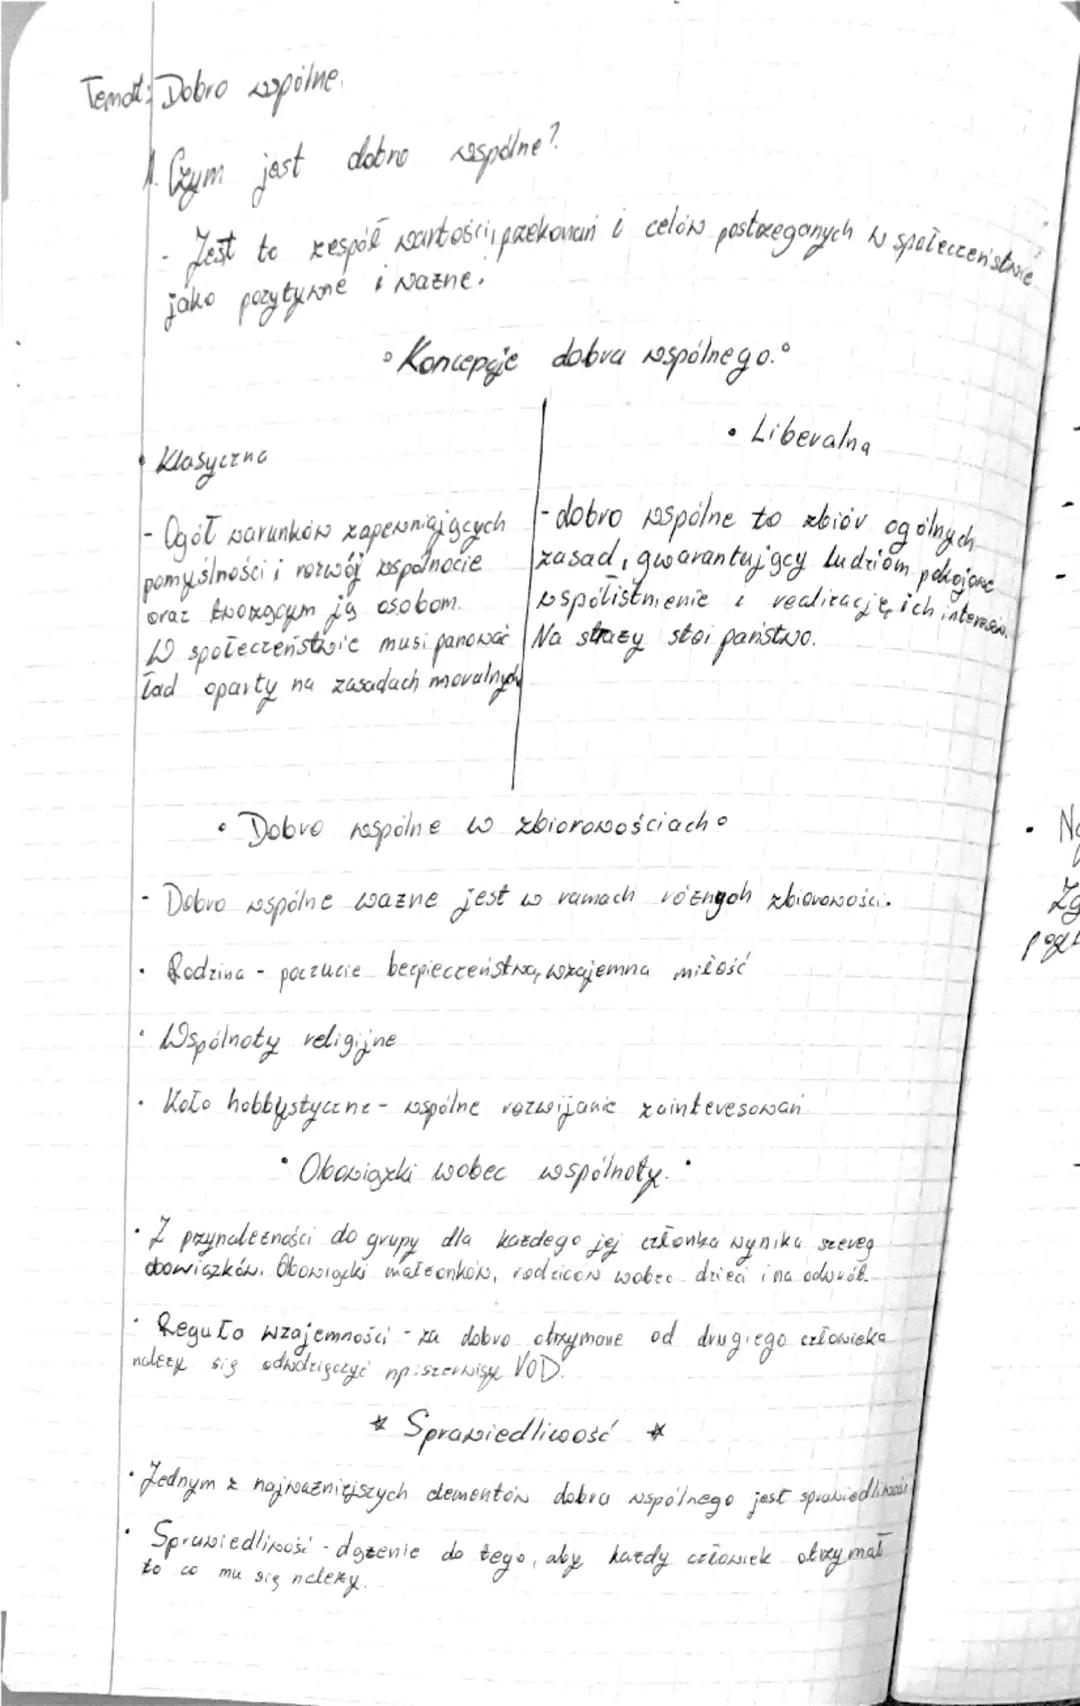 Temat: Dobro wspólne.
1. Czym jest dobro wspólne?
- Jest to zespół wartości, przekonań i celów postrzeganych w społeczeństwie
jako pozytywne i ważne.
• Koncepcje dobra wspólnego. •
• Klasyczna
- Ogół warunków zapewniających
pomyślności i rozwój wspólnocie
oraz tworzącym ją osobom.
W społeczeństwie musi panować
ład oparty na zasadach moralnych
• Liberalna
- dobro wspólne to zbiór ogólnych
zasad, gwarantujący ludziom pokojowe
współistnienie i realizację ich interesów.
Na straży stoi państwo.
• Dobro wspólne w zbiorowościach •
- Dobro wspólne ważne jest w ramach różnych zbiorowości.
• Rodzina - poczucie bezpieczeństwa, wzajemna miłość
• Wspólnoty religijne
• Koło hobbystyczne - wspólne rozwijanie zainteresowań
• Obowiązki wobec wspólnoty. •
• Z przynależności do grupy dla każdego jej członka wynika szereg
obowiązków. Obowiązki małżonków, rodziców wobec dzieci i na odwrót.
• Reguła wzajemności - za dobro otrzymane od drugiego człowieka
należy się odwdzięczyć np. serwisy VOD.
* Sprawiedliwość *
• Jednym z najważniejszych elementów dobra wspólnego jest sprawiedliwość
• Sprawiedliwość - dążenie do tego, aby każdy człowiek otrzymał
to co mu się należy.